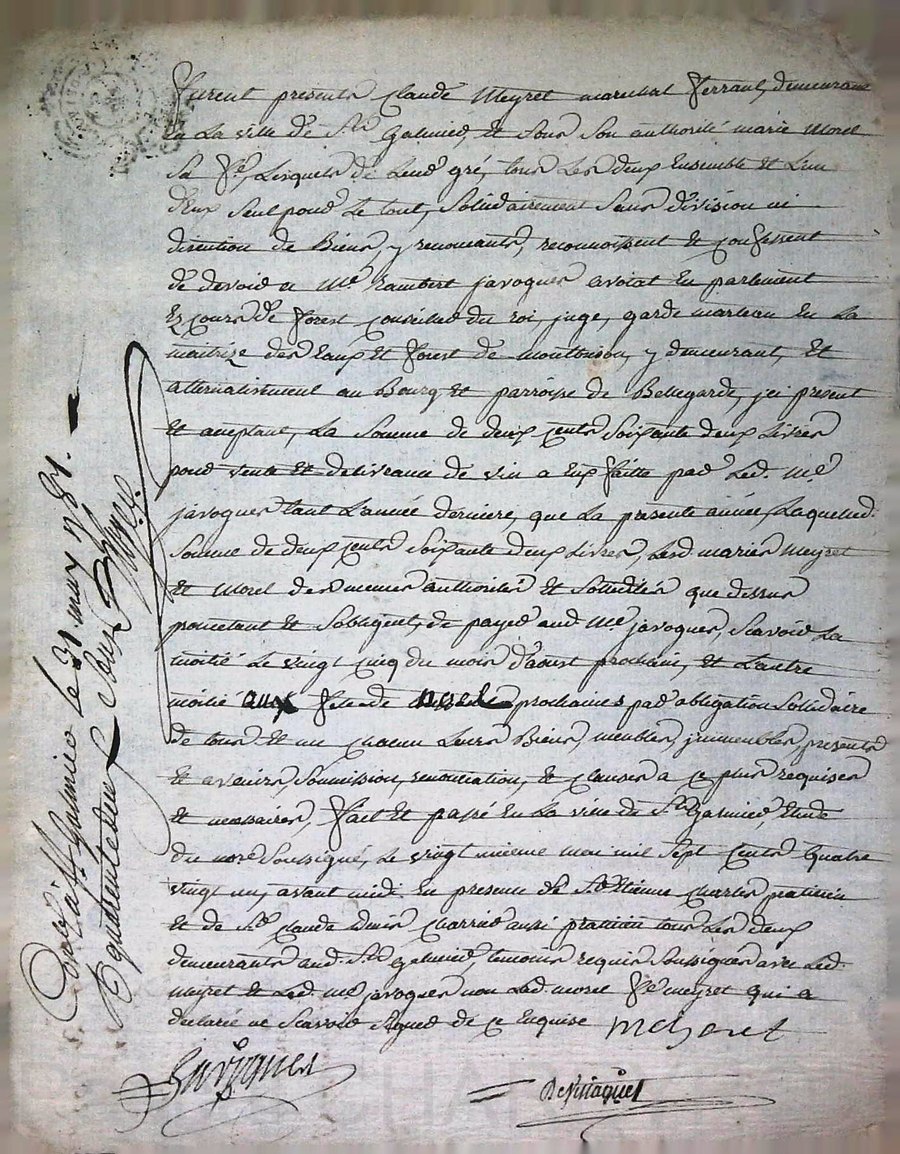 furent presents Claude Meyret marechal ferrant, demeurant
en La ville de St Galmier, et sous son authorité marie Morel
sa fe, Lesquels de Leur gré, tous Les deux Ensemble et L'un
d'Eux seul pour Le tout, solidairement sans division ni
discution de Biens, y renoncants, reconnoissent et confessent
de devoir a Me rambert javogues avocat En parlement
Ez cours de forest conseiller du roi, juge, garde marteau En La
maitrize des Eaux Et forest de montbrison, y demeurant, Et
alternativement au Bourg Et parroisse de Bellegarde, ici present
Et acceptant, La somme de deux cents soixante deux Livres
pour vente Et delivrance de vin a Eux faitte par Led. Me
javogues tant L'année derniere, que La presente année, Laquelle d.
somme de deux cents soixante deux Livres, Lesd mariés Meyret
Et Morel des memes authorité Et sollidité que dessus
promettant Et s'obligent, de payer aud Me javogues, scavoir La
moitié Le vingt cinq du mois d'aoust prochain, Et L'autre
moitié aux fete de noel prochaines par obligation sollidaire
de tous Et un chacun Leurs Biens, meubles, immeubles, presents
Et avenirs, soumission, renonciation, Et clauses a ce plus requises
Et necessaires, fait Et passé En La ville de St Galmier, Etude
du nore soussigné, Le vingt mai mil sept cents quatre
vingt un, avant midi En presence de Sr Etienne Charles praticien
Et de Sr Claude Denis Charrier aussi praticien tous Les deux
demeurants aud. St Galmier, temoins requis soussignés avec Led.
Meyret Et Led. Me javogues non Lad. morel fe meyret qui a
declaré ne scavoir signer de ce Enquise
Javogues
Controlé a St Galmier le 31 may 1781.